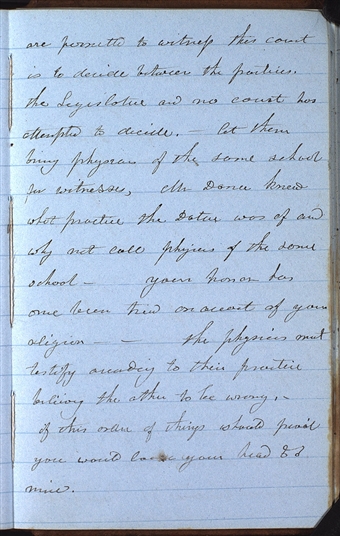 are permitted to witness this court
is to decide between the parties.
the Legislature and no court has
attempted to decide. — let them
bring physicans of the same school
for witnesses, Mr Dance knew
what practice the Doctor was of and
why not call physicans of the same
school — your honor has
one been tried on account of your
religion — — the physicans must
testify according to their practice
believing the other to be wrong, –
if this order of things should prevail
you would loose your head &
mine.